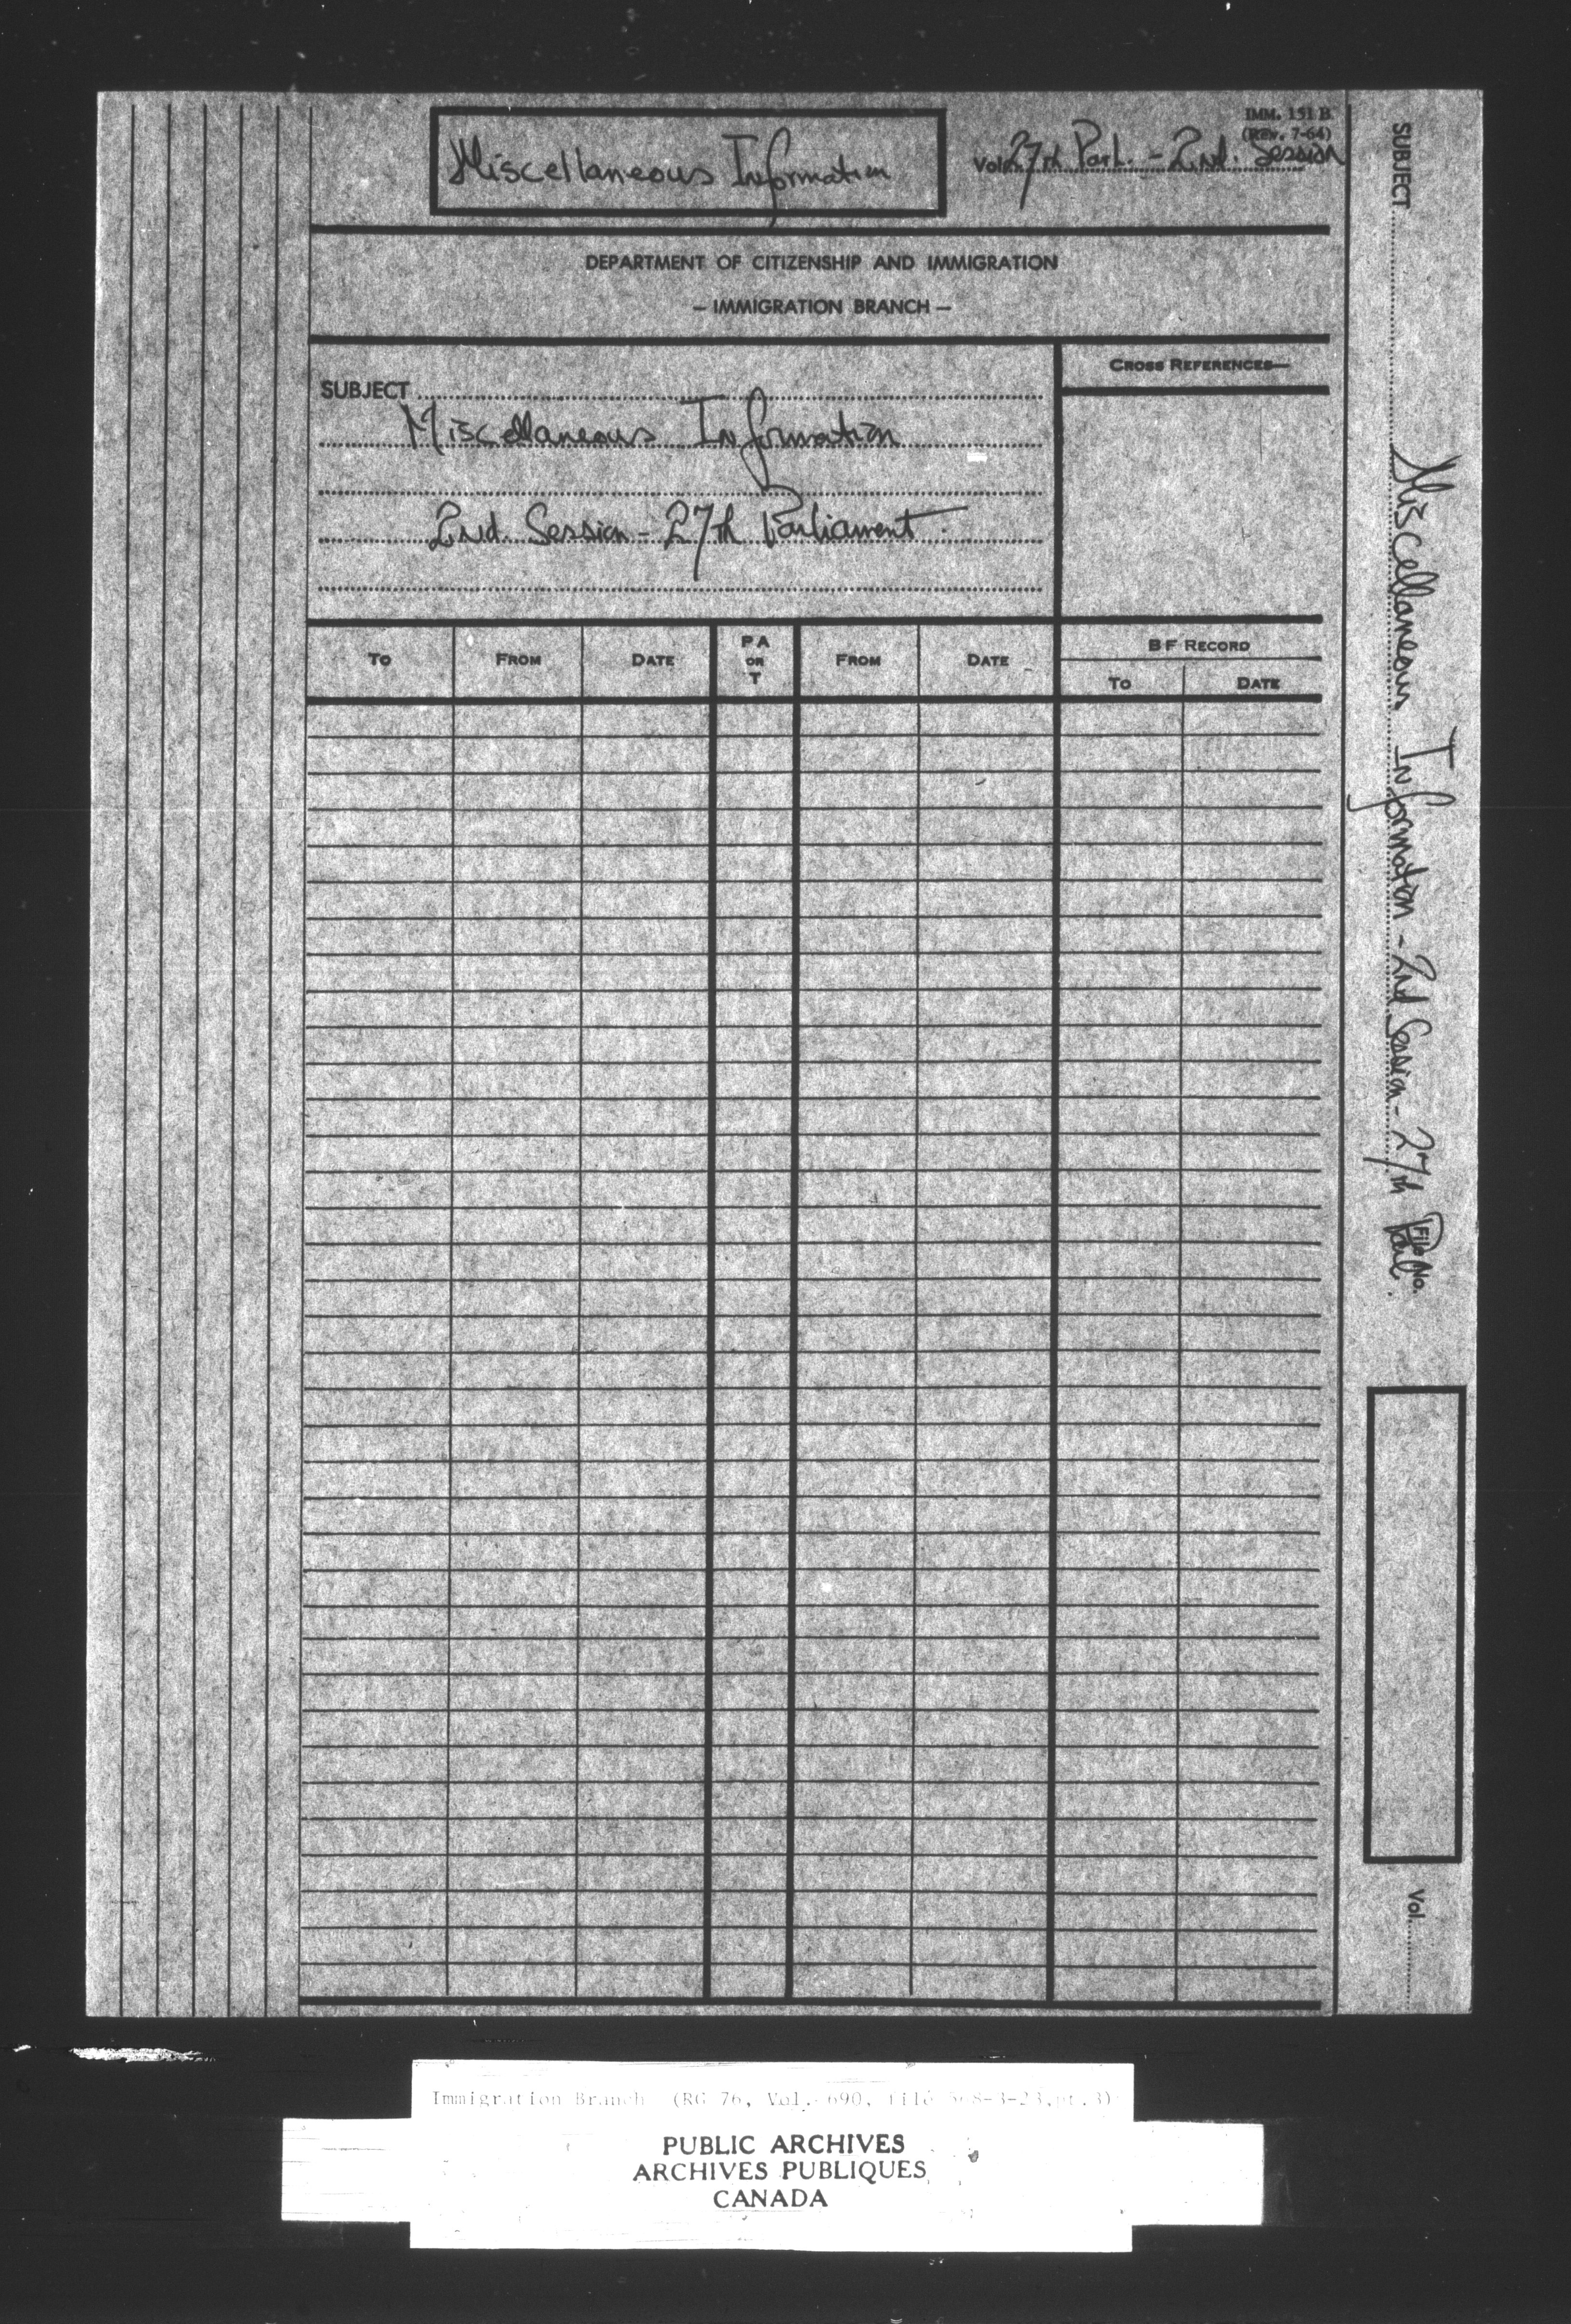 IMM. 151 B
(Rev. 7-64)
Miscellaneous Information
Vol. 27th Parl. - 2nd. Session
DEPARTMENT OF CITIZENSHIP AND IMMIGRATION
— IMMIGRATION BRANCH —
CROSS REFERENCES—
SUBJECT
Miscellaneous Information
2nd. Session - 27th Parliament.
TO FROM DATE P A OR T FROM DATE B F RECORD
TO DATE
SUBJECT Miscellaneous Information - 2nd Session - 27th Parl.
File No.
Vol.
Immigration Branch (RG 76, Vol. 690, file 568-3-23, pt.3)
PUBLIC ARCHIVES
ARCHIVES PUBLIQUES
CANADA